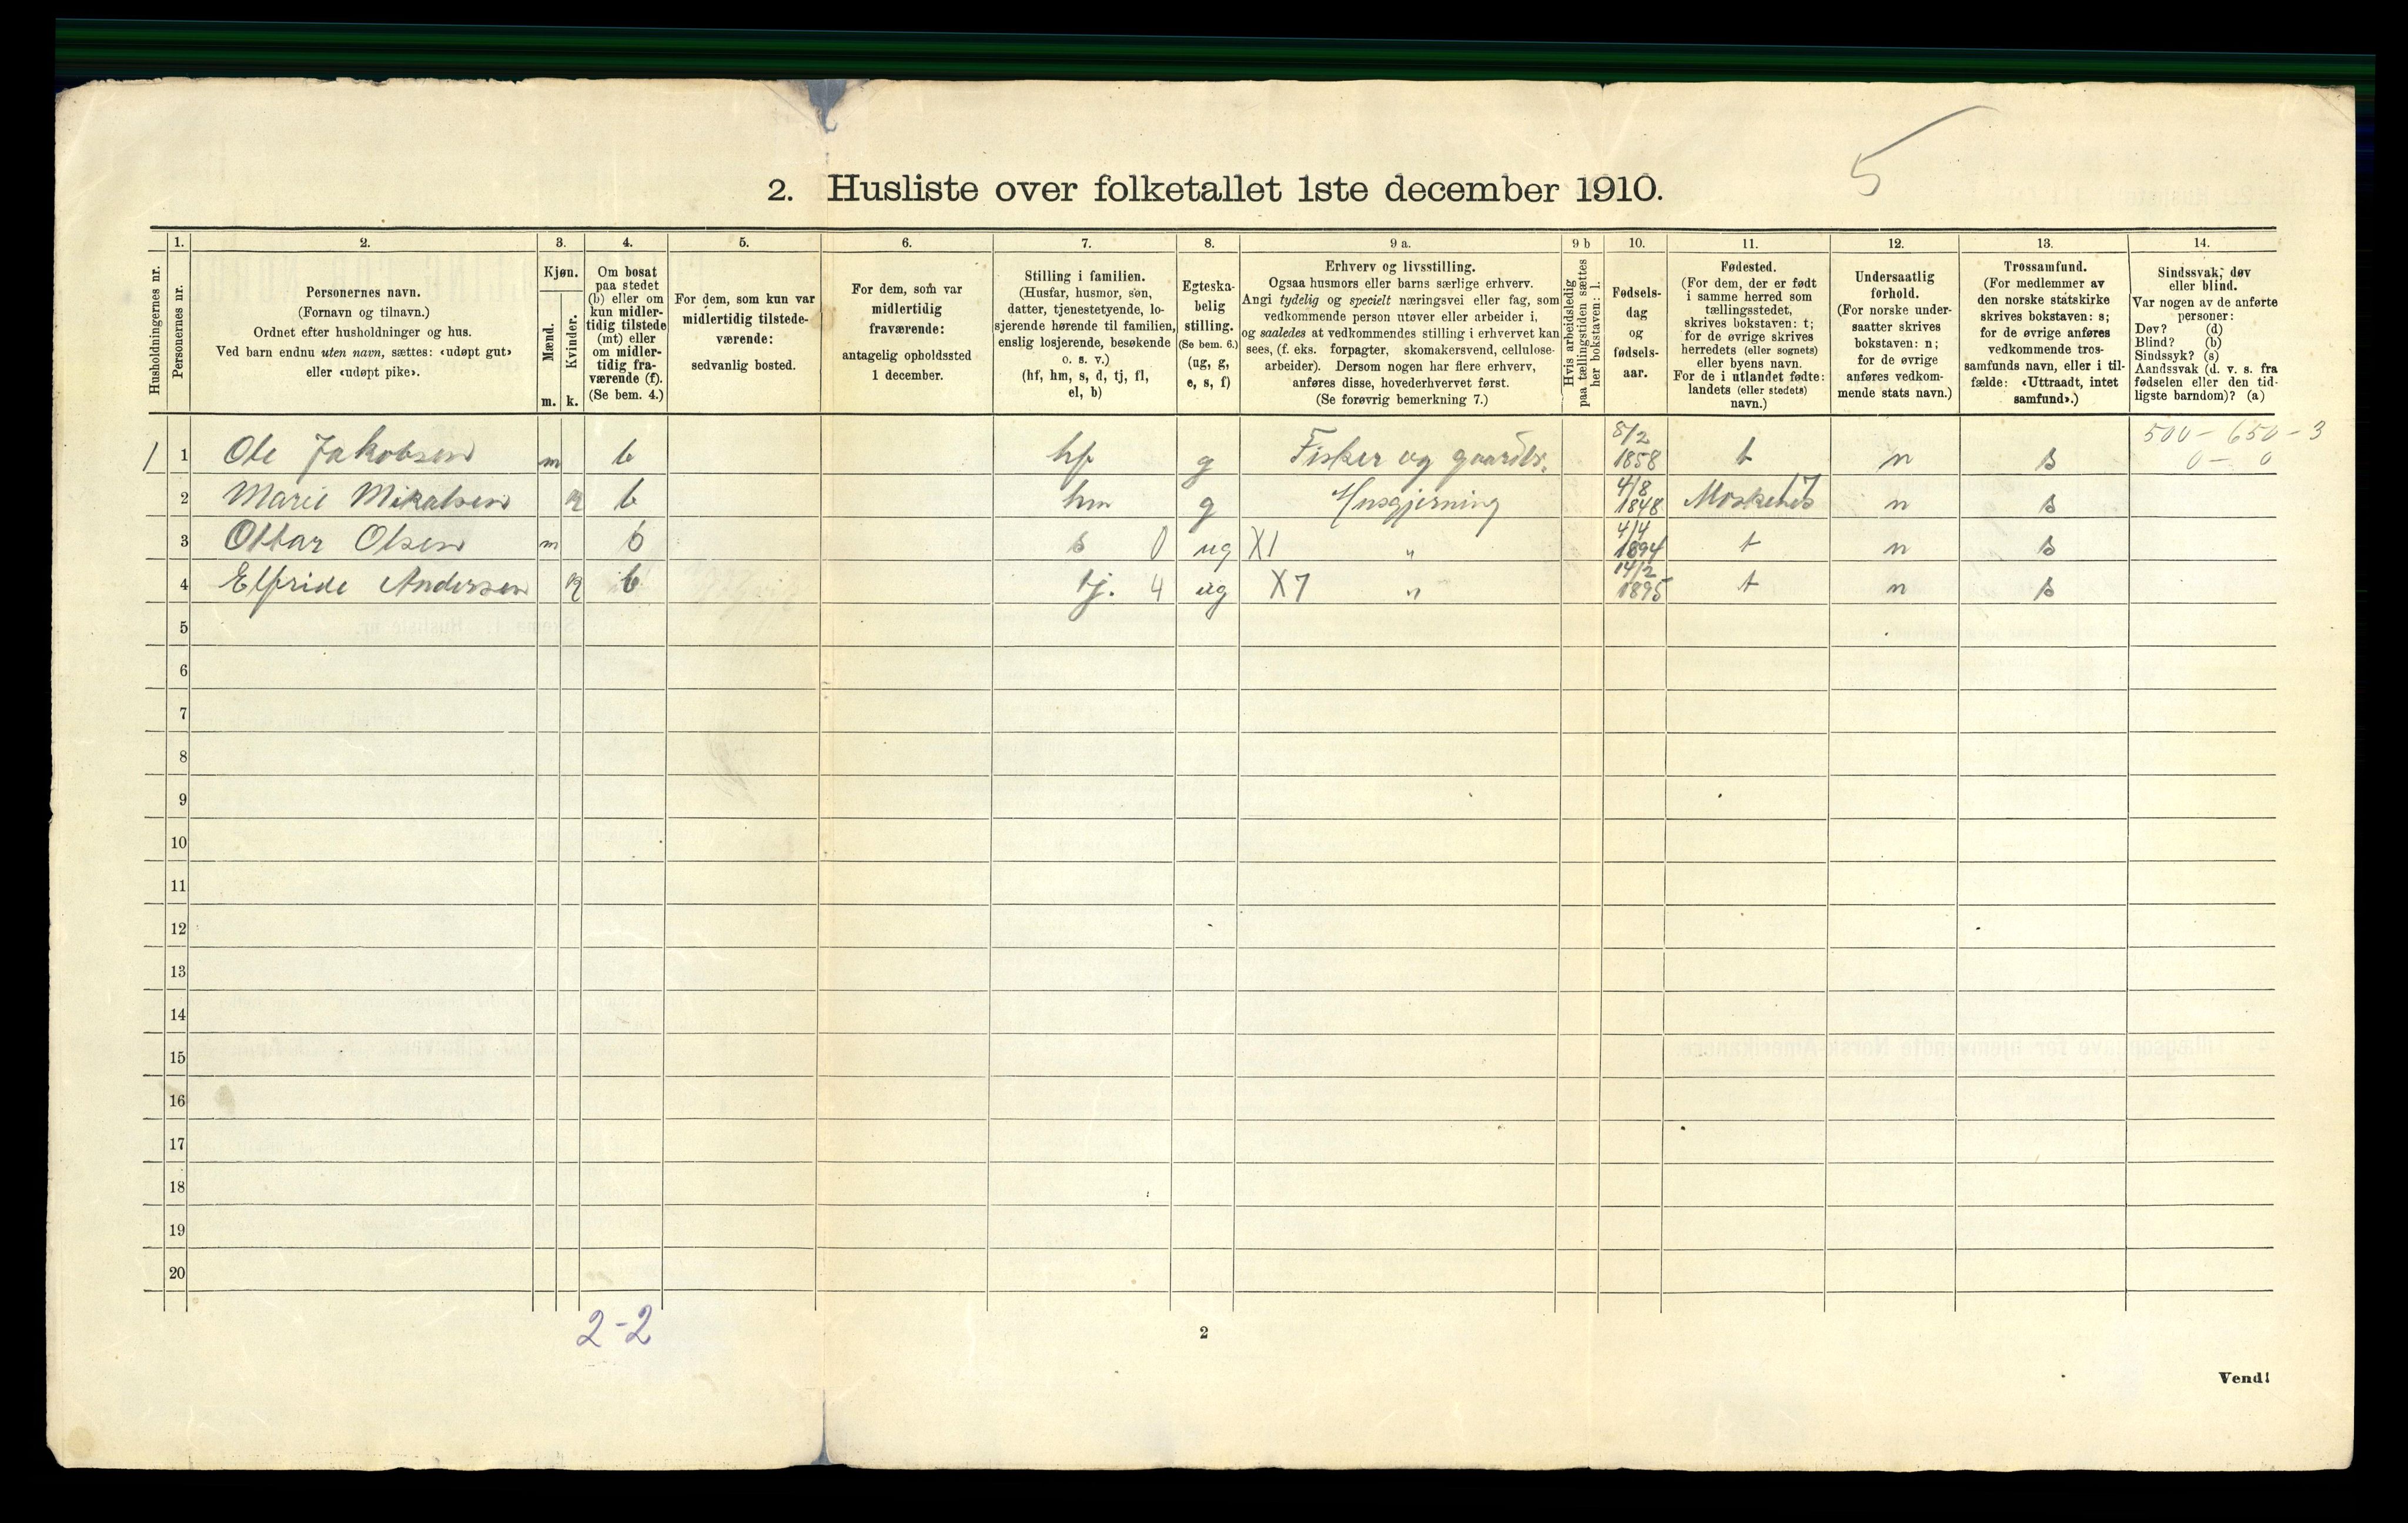 5
2. Husliste over folketallet 1ste december 1910.
Husholdningernes nr.
1.
Personernes nr.
2.
Personernes navn.
(Fornavn og tilnavn.)
Ordnet efter husholdninger og hus.
Ved barn endnu uten navn, sættes: «udøpt gut»
eller «udøpt pike».
3.
Kjøn.
Mænd.
Kvinder.
m. k.
4.
Om bosat
paa stedet
(b) eller om
kun midler-
tidig tilstede
(mt) eller
om midler-
tidig fra-
værende (f).
(Se bem. 4.)
5.
For dem, som kun var
midlertidig tilstede-
værende:
sedvanlig bosted.
6.
For dem, som var
midlertidig
fraværende:
antagelig opholdssted
1 december.
7.
Stilling i familien.
(Husfar, husmor, søn,
datter, tjenestetyende, lo-
sjerende hørende til familien,
enslig losjerende, besøkende
o. s. v.)
(hf, hm, s, d, tj, fl,
el, b)
8.
Egteska-
belig
stilling.
(Se bem. 6.)
(ug, g,
e, s, f)
9 a.
Erhverv og livsstilling.
Ogsaa husmors eller barns særlige erhverv.
Angi tydelig og specielt næringsvei eller fag, som
vedkommende person utøver eller arbeider i,
og saaledes at vedkommendes stilling i erhvervet kan
sees, (f. eks. forpagter, skomakersvend, cellulose-
arbeider). Dersom nogen har flere erhverv,
anføres disse, hovederhvervet først.
(Se forøvrig bemerkning 7.)
9 b
Hvis arbeidsledig
paa tællingstiden sættes
her bokstaven: l.
10.
Fødsels-
dag
og
fødsels-
aar.
11.
Fødested.
(For dem, der er født
i samme herred som
tællingsstedet,
skrives bokstaven: t;
for de øvrige skrives
herredets (eller sognets)
eller byens navn.
For de i utlandet fødte:
landets (eller stedets)
navn.)
12.
Undersaatlig
forhold.
(For norske under-
saatter skrives
bokstaven: n;
for de øvrige
anføres vedkom-
mende stats navn.)
13.
Trossamfund.
(For medlemmer av
den norske statskirke
skrives bokstaven: s;
for de øvrige anføres
vedkommende tros-
samfunds navn, eller i til-
fælde: «Uttraadt, intet
samfund».)
14.
Sindssvak, døv
eller blind.
Var nogen av de anførte
personer:
Døv? (d)
Blind? (b)
Sindssyk? (s)
Aandssvak (d. v. s. fra
fødselen eller den tid-
ligste barndom)? (a)
500 - 650 - 3
0 - 0
1 1 Ole Jakobsen m b hf g Fisker og gaardbr. 8/2 1858 t n s
2 Marie Mikalsen k b hm g Husgjerning 4/8 1848 Moskenes 17 n s
3 Ottar Olsen m b s 0 ug X1 " 4/4 1894 t n s
4 Elfride Andersen k b tj. 4 ug X7 " 14/2 1895 t n s
5
6
7
8
9
10
11
12
13
14
15
16
17
18
19
20
2-2
2
Vend!